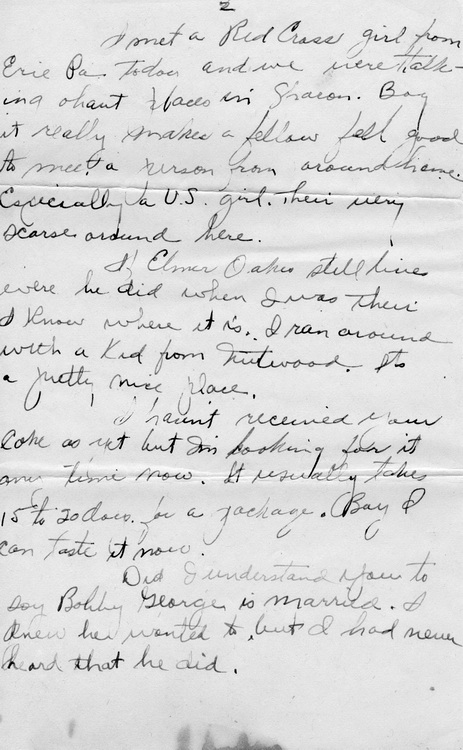 2
I met a Red Cross girl from
Erie Pa. Today and we were talk-
ing about places in Sharon. Boy
it really makes a fellow fell good
to meet a person from around home.
Especially a U.S. girl. Their very
scarse around here.
If Elmer Oakes still live
were he did when I was their
I know where it is. I ran around
with a Kid from . Its
a pretty nice place.
I haunt received your
Coke as yet but Im looking for it
any time now. It usually takes
15 to 20 days for a package. Boy I
can taste it now.
Did I understand you to
say Bobby George is married. I
knew he wanted to, but I had never
heard that he did.